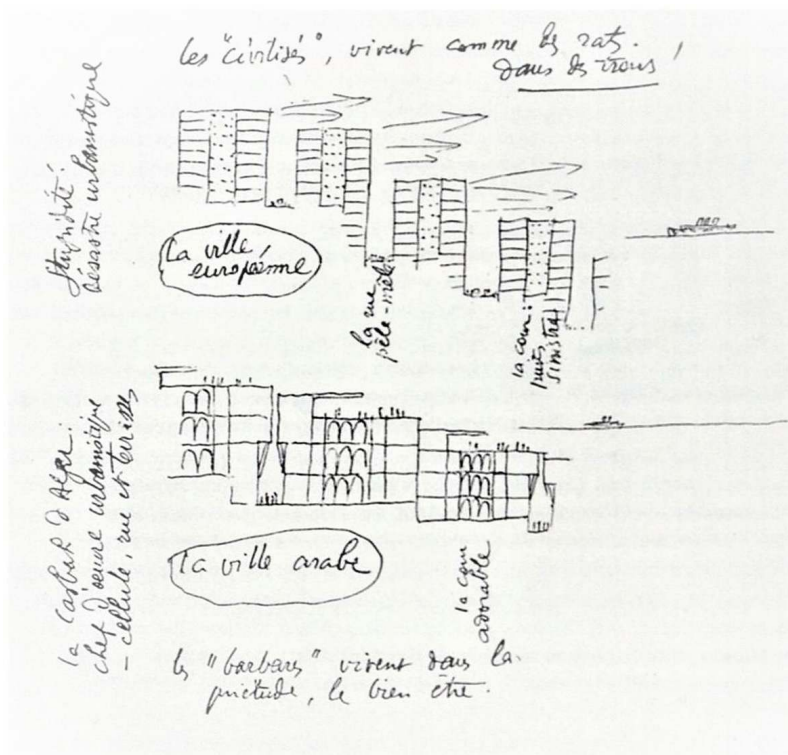 les "civilisés", vivent comme des rats
dans des trous,
Stupidité
désastre urbanistique
la ville
européenne
la rue
pêle-mêle
la cour:
puits
sinistre
la Casbah d'Alger
chef d'œuvre urbanistique
- cellule rue et terrasses
la ville arabe
la cour
adorable
les "barbares" vivent dans la
quiétude, le bien être.